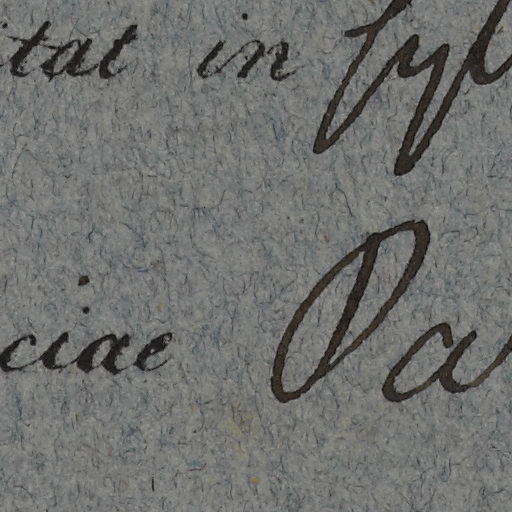 itat in Syl
ciae Pa